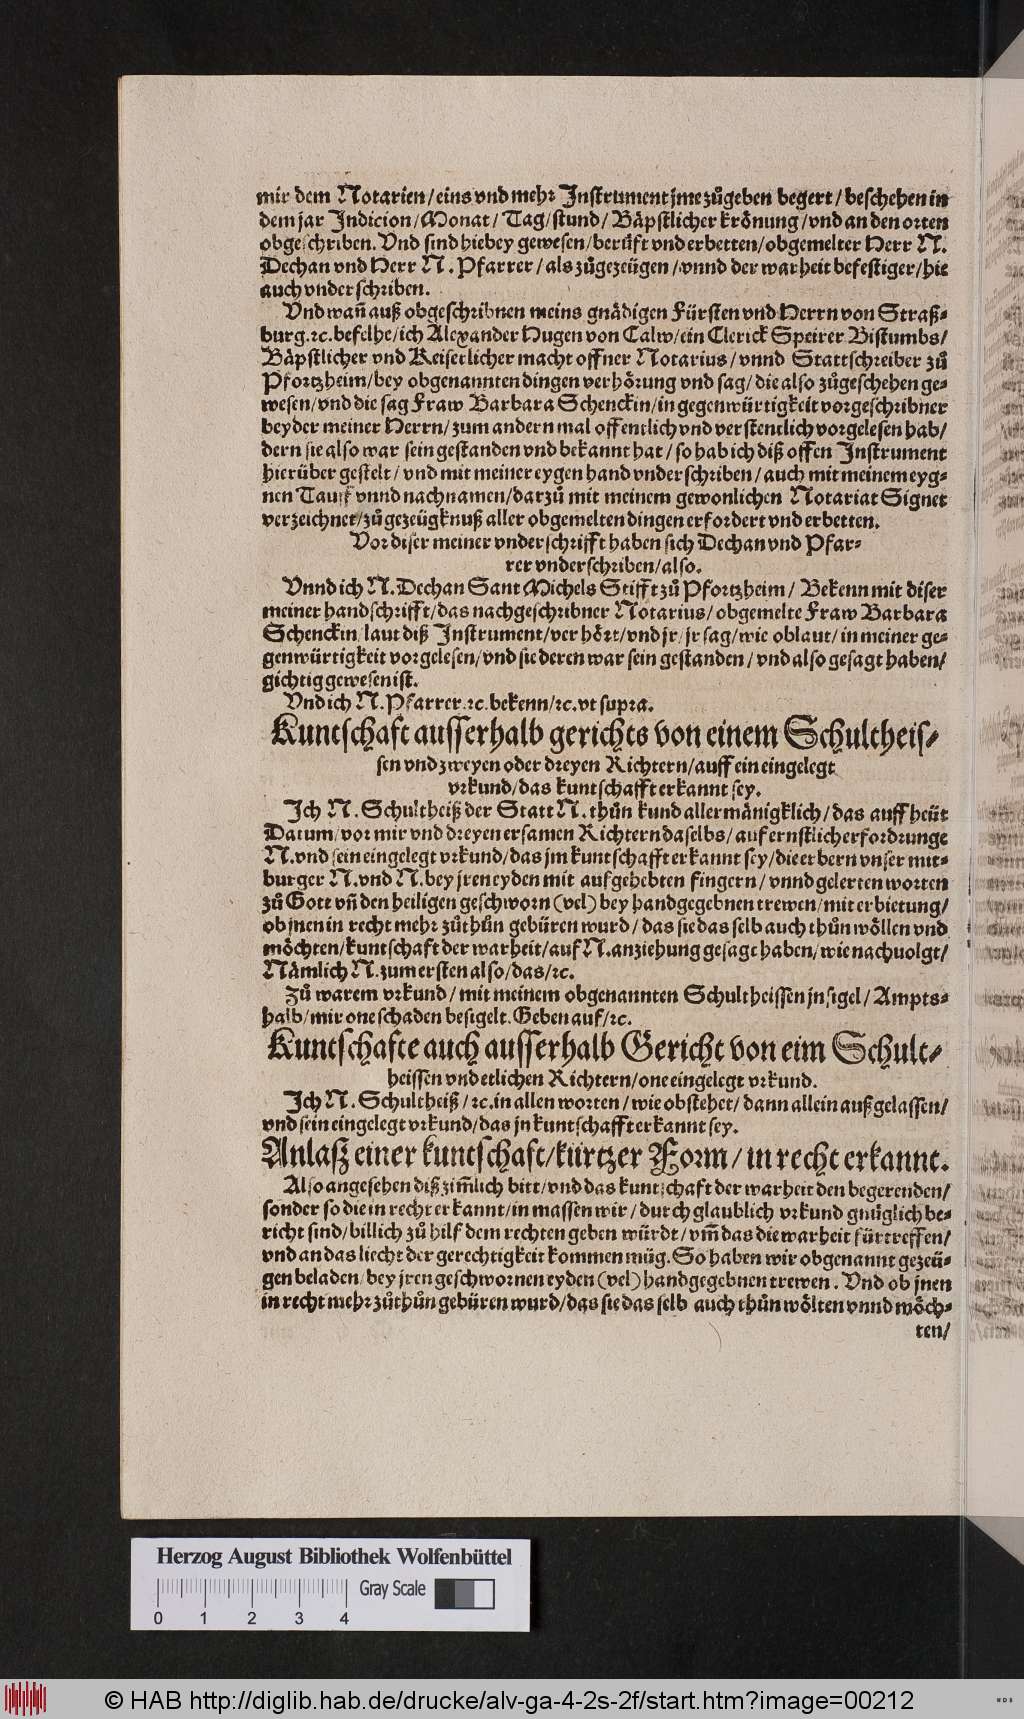 mir dem Notarien/eins vnd mehr Instrument jme zůgeben begert/beschehen in
dem jar Indicion/Monat/Tag/stund/Bäpstlicher krönung/vnd an den orten
obgeschriben. Vnd sind hiebey gewesen/berůft vnd erbetten/obgemelter Herr N.
Dechan vnd Herr N. Pfarrer/als zůgezeügen/vnnd der warheit befestiger/hie
auch vnderschriben.
Vnd wañ auß obgeschribnen meins gnädigen Fürsten vnd Herrn von Straß-
burg.ꝛc.befelhe/ich Alexander Hugen von Calw/ein Clerick Speirer Bistumbs/
Bäpstlicher vnd Keiserlicher macht offner Notarius/vnnd Stattschreiber zů
Pfortzheim/bey obgenannten dingen verhörung vnd sag/die also zůgeschehen ge-
wesen/vnd die sag Fraw Barbara Schenckin/in gegenwürtigkeit vorgeschribner
beyder meiner Herrn/zum andern mal offentlich vnd verstentlich vorgelesen hab/
dern sie also war sein gestanden vnd bekannt hat/so hab ich diß offen Instrument
hierüber gestelt/vnd mit meiner eygen hand vnderschriben/auch mit meinem eyg-
nen Tauff vnnd nachnamen/darzů mit meinem gewonlichen Notariat Signet
verzeichnet/zů gezeügknuß aller obgemelten dingen erfordert vnd erbetten.
Vor diser meiner vnderschrifft haben sich Dechan vnd Pfar-
rer vnderschriben/also.
Vnnd ich N. Dechan Sant Michels Stifft zů Pfortzheim/Bekenn mit diser
meiner handschrifft/das nachgeschribner Notarius/obgemelte Fraw Barbara
Schenckin/laut diß Instrument/verhört/vnd jr/jr sag/wie oblaut/in meiner ge-
genwürtigkeit vorgelesen/vnd sie deren war sein gestanden/vnd also gesagt haben/
gichtig gewesen ist.
Vnd ich N. Pfarrer.ꝛc.bekenn/ꝛc.vt supra.
Kuntschaft ausserhalb gerichts von einem Schultheis-
sen vnd zweyen oder dreyen Richtern/auff ein eingelegt
vrkund/das kuntschafft erkannt sey.
Ich N. Schultheiß der Statt N. thůn kund allermänigklich/das auff heüt
Datum/vor mir vnd dreyen ersamen Richtern daselbs/auf ernstlich erfordrunge
N.vnd sein eingelegt vrkund/das jm kuntschafft erkannt sey/die erbern vnser mit-
burger N.vnd N.bey jren eyden mit aufgehebten fingern/vnnd gelerten worten
zů Gott vñ den heiligen geschworn (vel) bey handgegebnen trewen/mit erbietung/
ob jnen in recht mehr zůthůn gebüren wurd/das sie das selb auch thůn wöllen vnd
möchten/kuntschaft der warheit/auf N.anziehung gesagt haben/wie nachuolgt/
Nämlich N.zum ersten also/das/ꝛc.
Zů warem vrkund/mit meinem obgenannten Schultheissen jnsigel/Ampts-
halb/mir one schaden besigelt. Geben auf/ꝛc.
Kuntschafte auch ausserhalb Gericht von eim Schult-
heissen vnd etlichen Richtern/one eingelegt vrkund.
Ich N. Schultheiß/ꝛc.in allen worten/wie obstehet/dann allein außgelassen/
vnd sein eingelegt vrkund/das jn kuntschafft erkannt sey.
Anlasz einer kuntschaft/kürtzer Form/in recht erkannt.
Also angesehen diß zim̃lich bitt/vnd das kuntschaft der warheit den begerenden/
sonder so die in recht erkannt/in massen wir/durch glaublich vrkund gnůglich be-
richt sind/billich zů hilf dem rechten geben würdt/vm̃ das die warheit fürtreffen/
vnd an das liecht der gerechtigkeit kommen müg. So haben wir obgenannt gezeü-
gen beladen/bey jren geschwornen eyden (vel) handgegebnen trewen. Vnd ob jnen
in recht mehr zůthůn gebüren wurd/das sie das selb auch thůn wölten vnnd möch-
ten/
Herzog August Bibliothek Wolfenbüttel
Gray Scale
0 1 2 3 4
© HAB http://diglib.hab.de/drucke/alv-ga-4-2s-2f/start.htm?image=00212